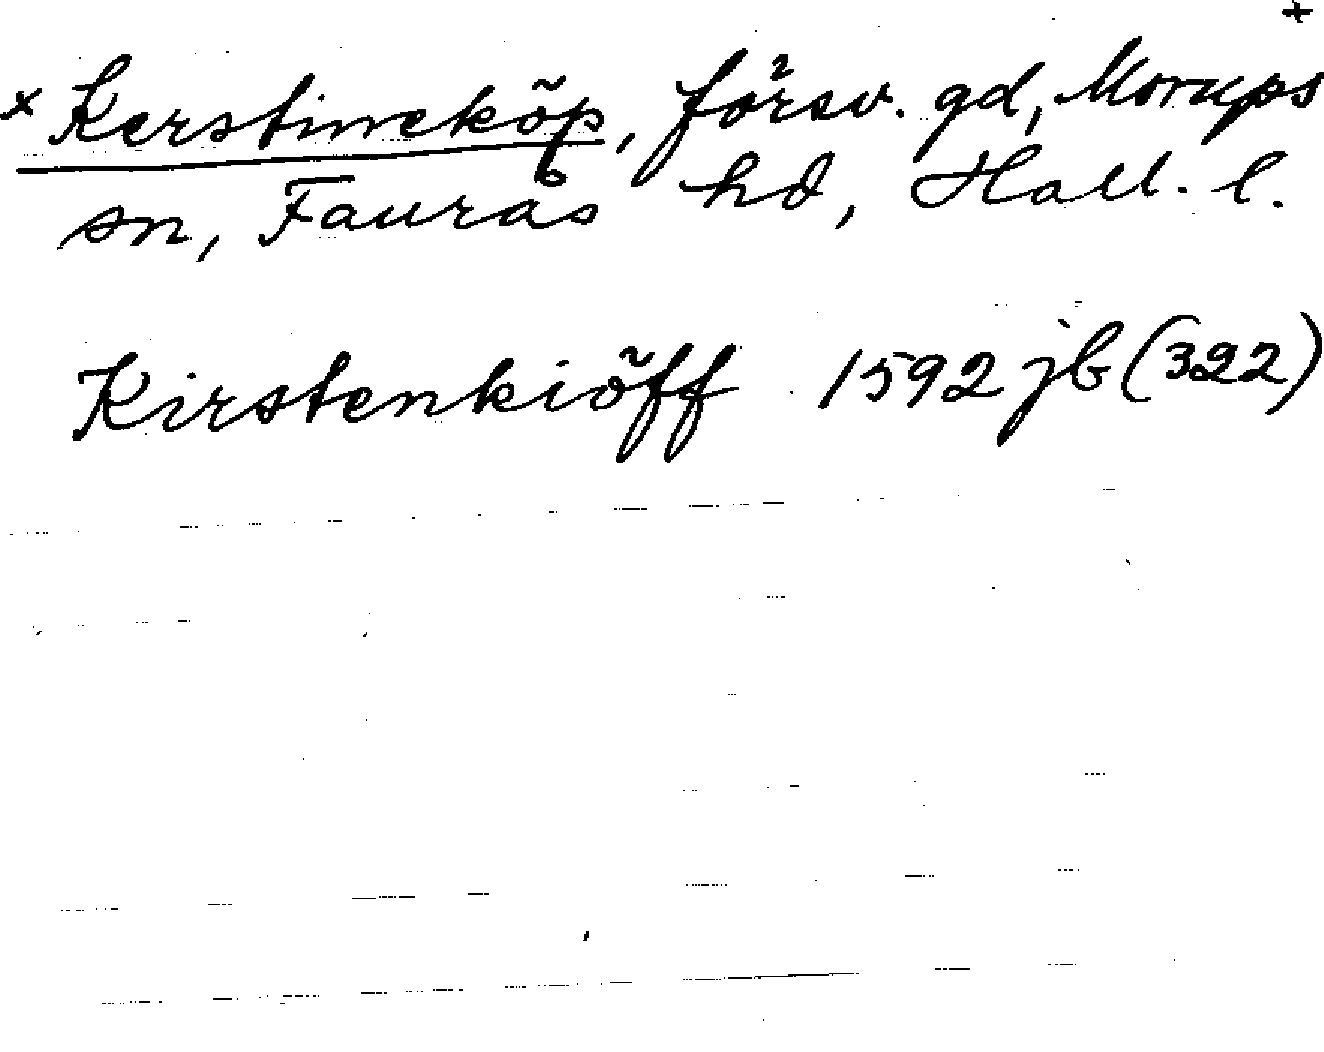 +
× Kerstineköp, försv. gd, Morups
sn, Faurås hd, Hall. l.
Kirstenkiöff 1592 jb (322)